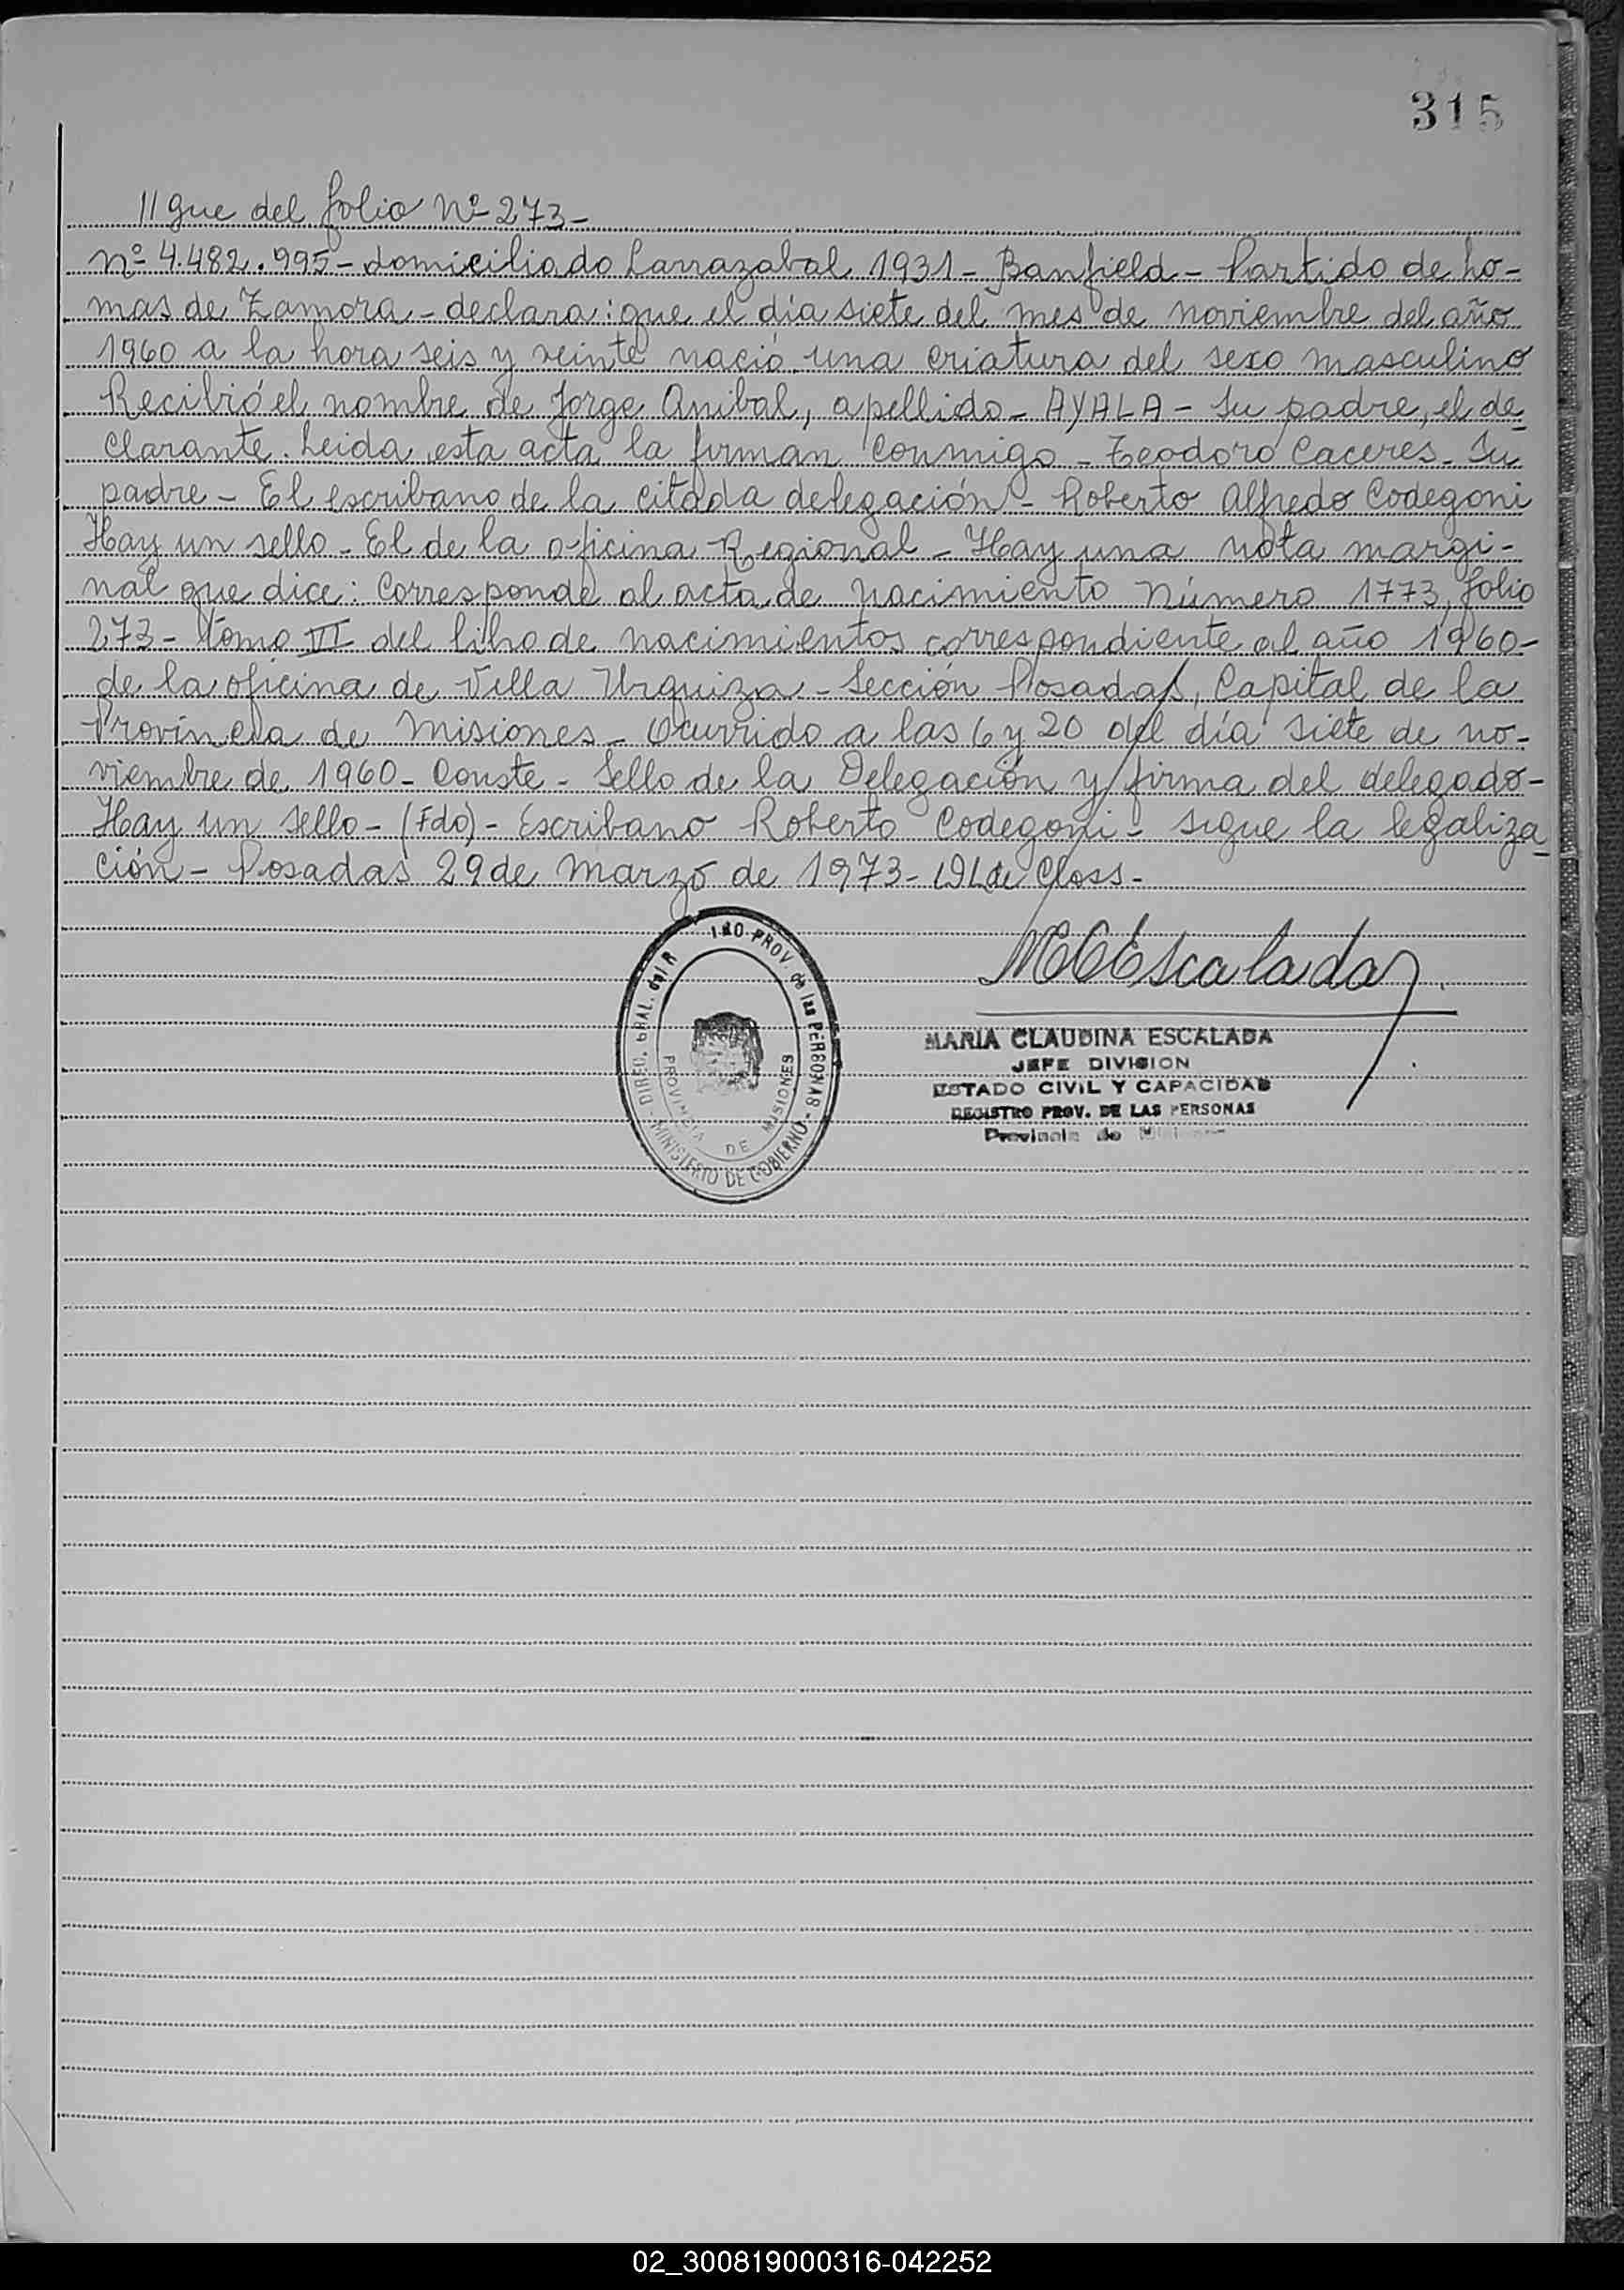 315
//gue del folio Nº 273-
Nº 4.482.995- domiciliado Larrazabal 1931- Banfield- Partido de Lo-
mas de Zamora.- declara: que el día siete del mes de noviembre del año
1960 a la hora seis y veinte nació una criatura del sexo masculino
Recibió el nombre de Jorge Anibal, apellido- AYALA- Su padre, el de-
clarante. Leida esta acta la firman conmigo- Teodoro Caceres- Su
padre- El escribano de la citada delegación- Roberto Alfredo Codegoni
Hay un sello- El de la oficina Regional- Hay una nota margi-
nal que dice: Corresponde al acta de nacimiento Número 1773, folio
273- Tomo VI del libro de nacimientos correspondiente al año 1960-
de la oficina de Villa Urquiza- Sección Posadas, Capital de la
Provincia de Misiones- Ocurrido a las 6 y 20 del día siete de no-
viembre de 1960- Conste- Sello de la Delegación y firma del delegado-
Hay un sello- (Fdo)- Escribano Roberto Codegoni- sigue la legaliza-
ción- Posadas 29 de marzo de 1973- de Closs-
MCEscalada
DIREC. GRAL. del R PROV. de las PERSONAS
PROVINCIA DE MISIONES
MINISTERIO DE GOBIERNO
MARIA CLAUDINA ESCALADA
JEFE DIVISION
ESTADO CIVIL Y CAPACIDAD
REGISTRO PROV. DE LAS PERSONAS
Provincia de
02_300819000316-042252